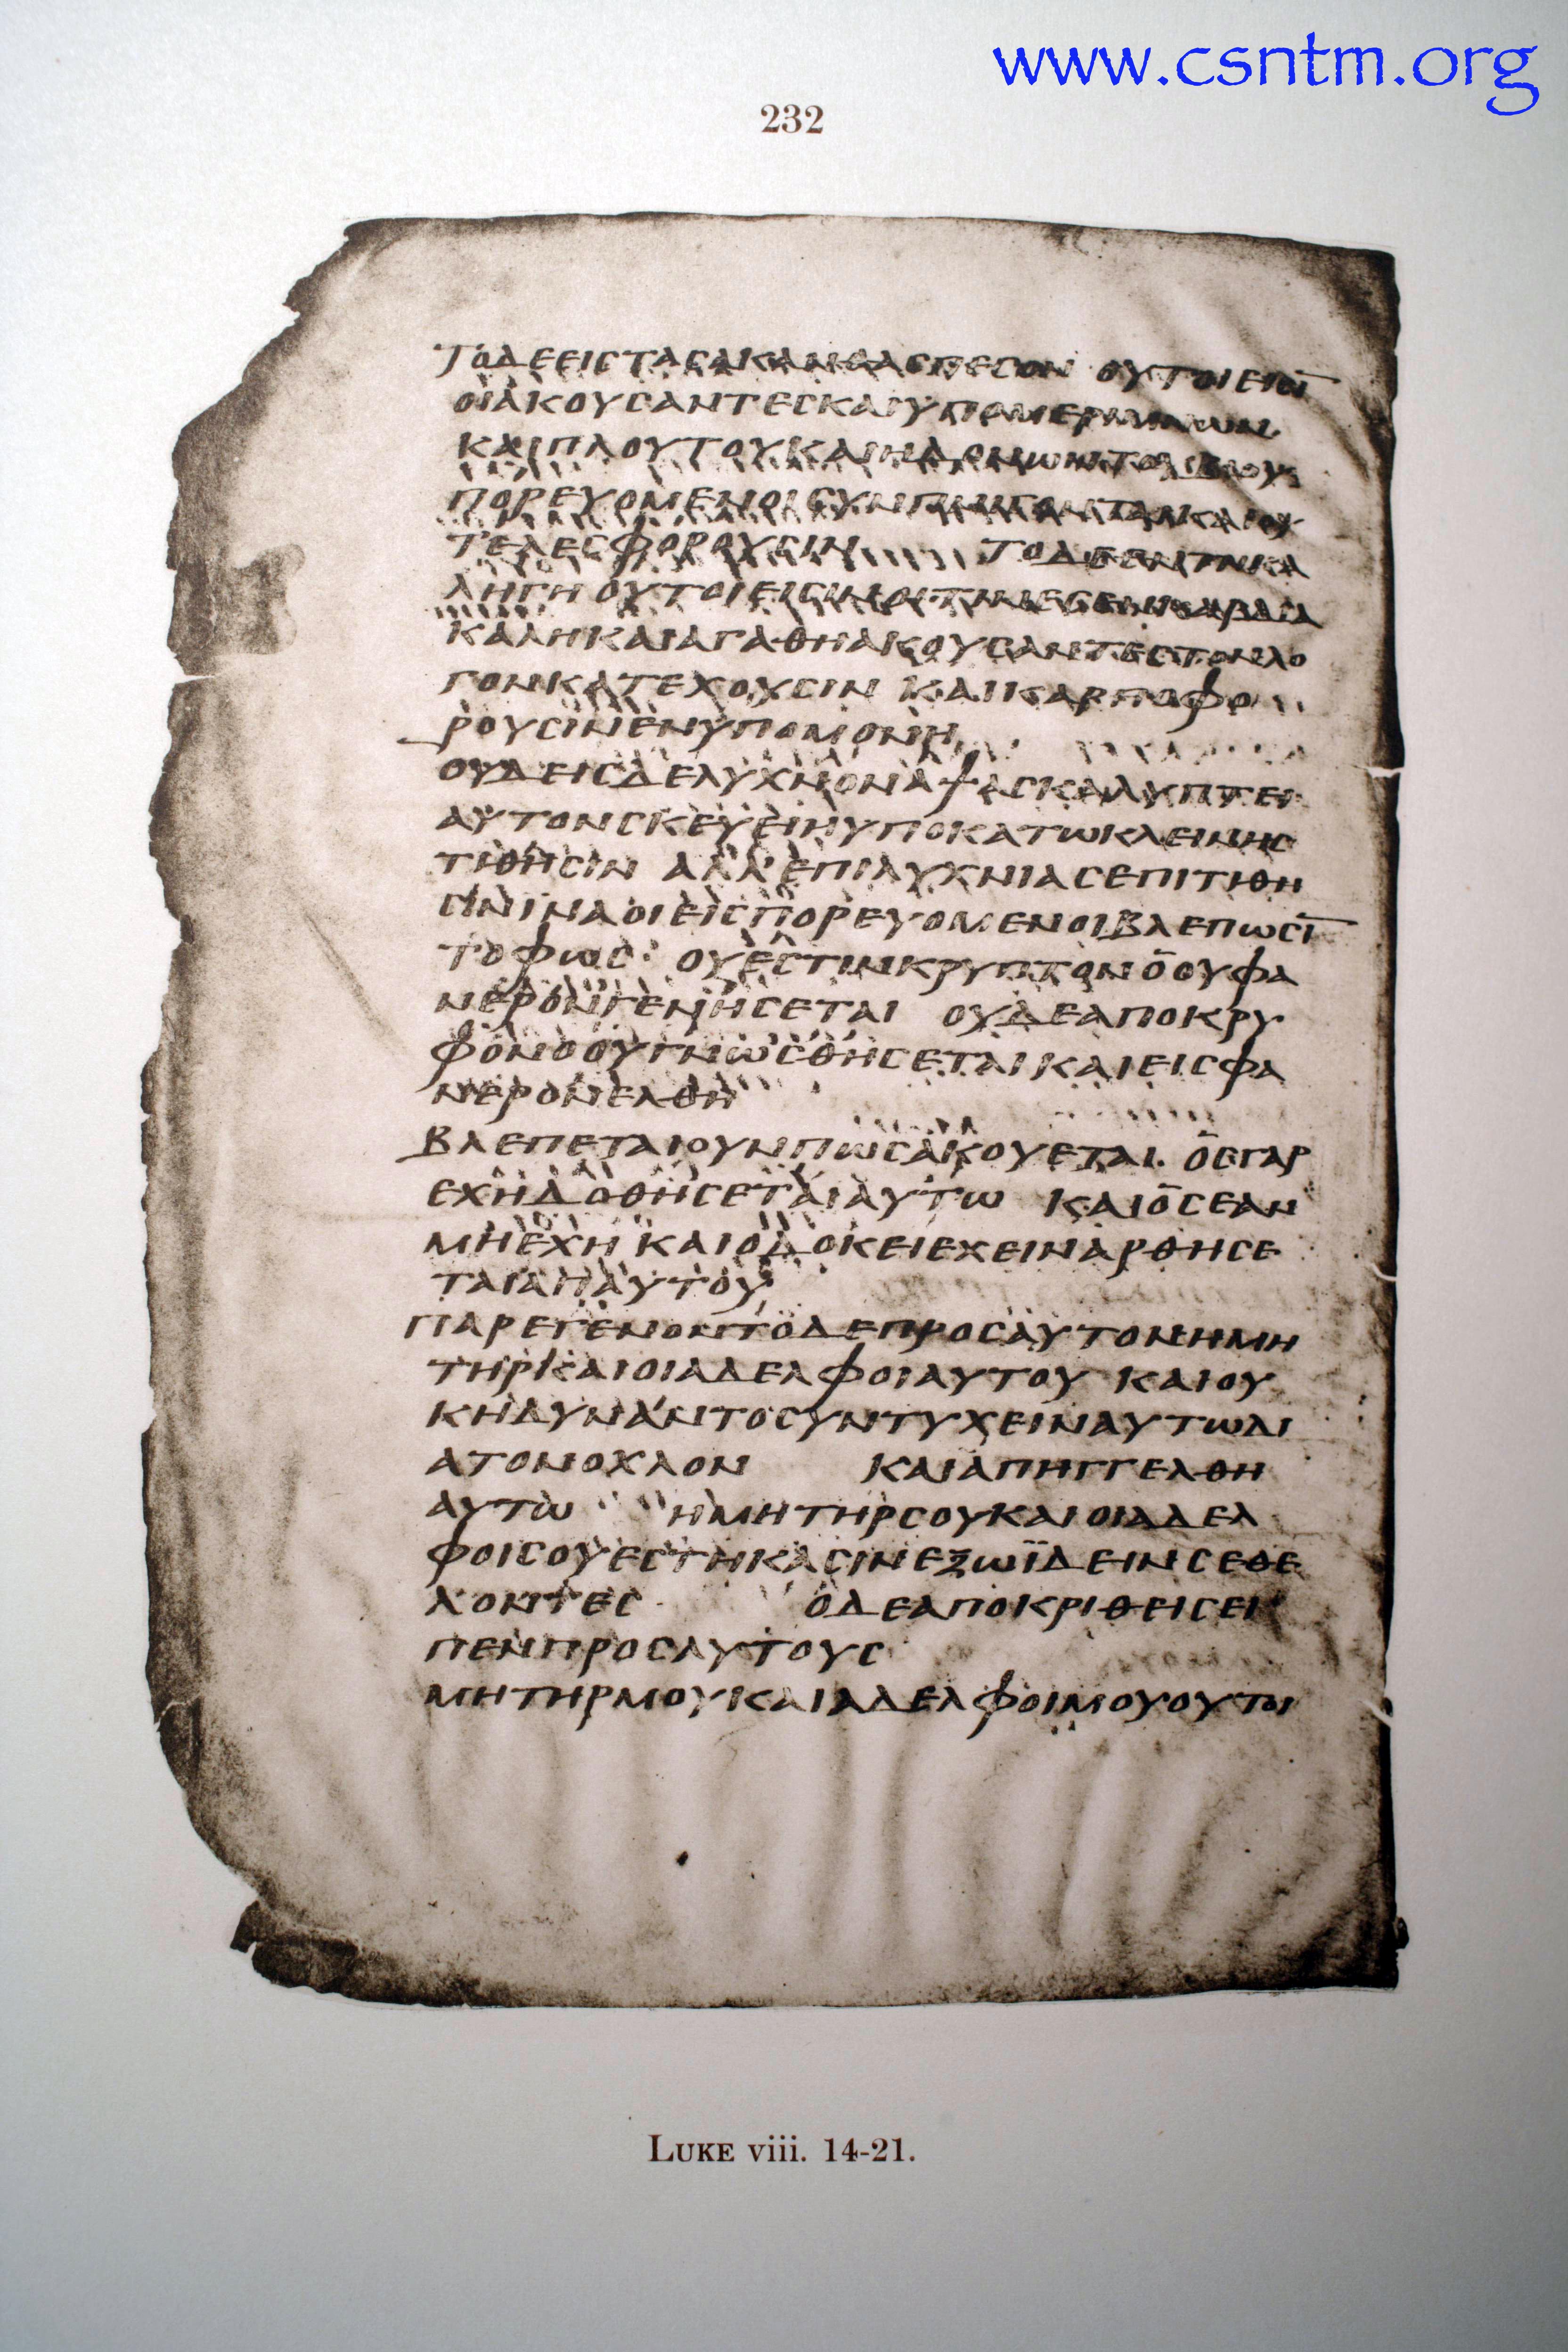 www.csntm.org
232
ΤΟΔΕΕΙСΤΑСΑΚΑΝΘΑСΠΕСΟΝ ΟΥΤΟΙΕΙСΙ̅
ΟΙΑΚΟΥСΑΝΤΕСΚΑΙΥΠΟΜΕΡΙΜΝΩΝ
ΚΑΙΠΛΟΥΤΟΥΚΑΙΗΔΟΝΩΝΤΟΥΒΙΟΥ
ΠΟΡΕΥΟΜΕΝΟΙСΥΝΠΝΙΓΟΝΤΑΙΚΑΙΟΥ
ΤΕΛΕСΦΟΡΟΥСΙΝ ΤΟΔΕΕΝΤΗΚΑ
ΛΗΓΗ ΟΥΤΟΙΕΙСΙΝΟΙΤΙΝΕСΕΝΚΑΡΔΙΑ
ΚΑΛΗΚΑΙΑΓΑΘΗΑΚΟΥСΑΝΤΕСΤΟΝΛΟ
ΓΟΝΚΑΤΕΧΟΥСΙΝ ΚΑΙΚΑΡΠΟΦΟ
ΡΟΥСΙΝΕΝΥΠΟΜΟΝΗ
ΟΥΔΕΙСΔΕΛΥΧΝΟΝΑΨΑСΚΑΛΥΠΤΕΙ
ΑΥΤΟΝСΚΕΥΕΙΗΥΠΟΚΑΤΩΚΛΕΙΝΗС
ΤΙΘΗСΙΝ ΑΛΛΕΠΙΛΥΧΝΙΑСΕΠΙΤΙΘΗ
СΙΝΙΝΑΟΙΕΙСΠΟΡΕΥΟΜΕΝΟΙΒΛΕΠΩСΙ̅
ΤΟΦΩС· ΟΥΕСΤΙΝΚΡΥΠΤΟΝΟΟΥΦΑ
ΝΕΡΟΝΓΕΝΗСΕΤΑΙ ΟΥΔΕΑΠΟΚΡΥ
ΦΟΝΟΟΥΓΝΩСΘΗСΕΤΑΙΚΑΙΕΙСΦΑ
ΝΕΡΟΝΕΛΘΗ
ΒΛΕΠΕΤΑΙΟΥΝΠΩСΑΚΟΥΕΤΑΙ· ΟСΓΑΡ
ΕΧΗΔΟΘΗСΕΤΑΙΑΥΤΩ ΚΑΙΟСΕΑΝ
ΜΗΕΧΗΚΑΙΟΔΟΚΕΙΕΧΕΙΝΑΡΘΗСΕ
ΤΑΙΑΠΑΥΤΟΥ
ΠΑΡΕΓΕΝΟΝΤΟΔΕΠΡΟСΑΥΤΟΝΗΜΗ
ΤΗΡΚΑΙΟΙΑΔΕΛΦΟΙΑΥΤΟΥ ΚΑΙΟΥ
ΚΗΔΥΝΑΝΤΟСΥΝΤΥΧΕΙΝΑΥΤΩΔΙ
ΑΤΟΝΟΧΛΟΝ ΚΑΙΑΠΗΓΓΕΛΘΗ
ΑΥΤΩ ΗΜΗΤΗΡСΟΥΚΑΙΟΙΑΔΕΛ
ΦΟΙСΟΥΕСΤΗΚΑСΙΝΕΞΩΪΔΕΙΝСΕΘΕ
ΛΟΝΤΕС ΟΔΕΑΠΟΚΡΙΘΕΙСΕΙ
ΠΕΝΠΡΟСΑΥΤΟΥС
ΜΗΤΗΡΜΟΥΚΑΙΑΔΕΛΦΟΙΜΟΥΟΥΤΟΙ
LUKE viii. 14-21.